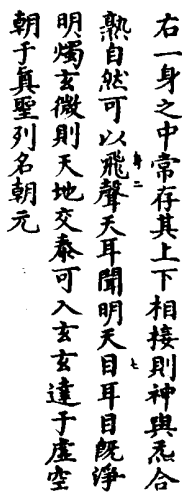 右一身之中常存其上下相接則神與炁合
熟自然可以飛聲天耳聞明天目耳目既淨
明燭玄微則天地交泰可入玄玄達于虛空
朝于真聖列名朝元